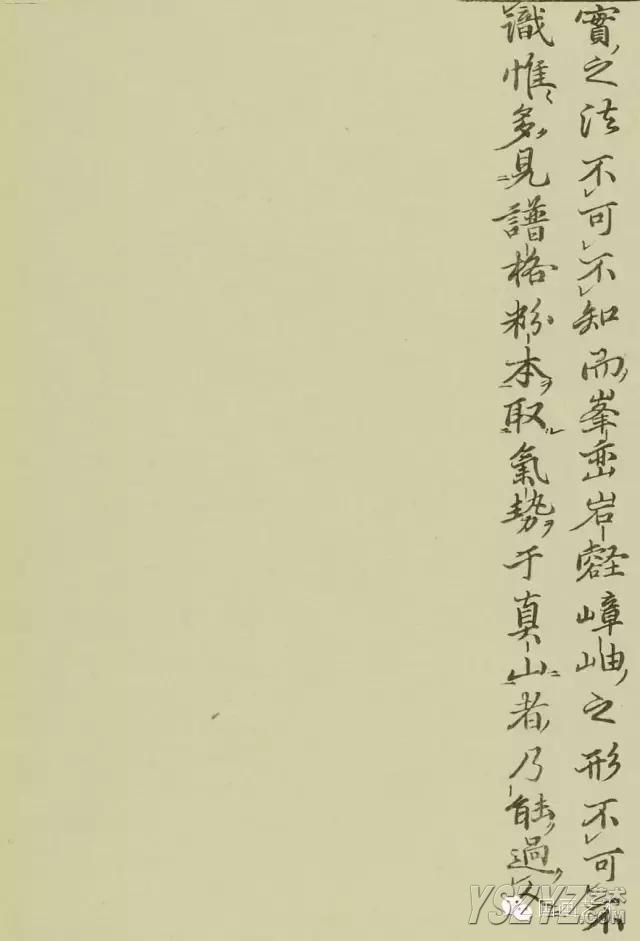 實之法不可不知而峯巒岩壑嶂岫之形不可不
識惟多見譜格粉本取氣勢于真山者乃能過
YSZYZ